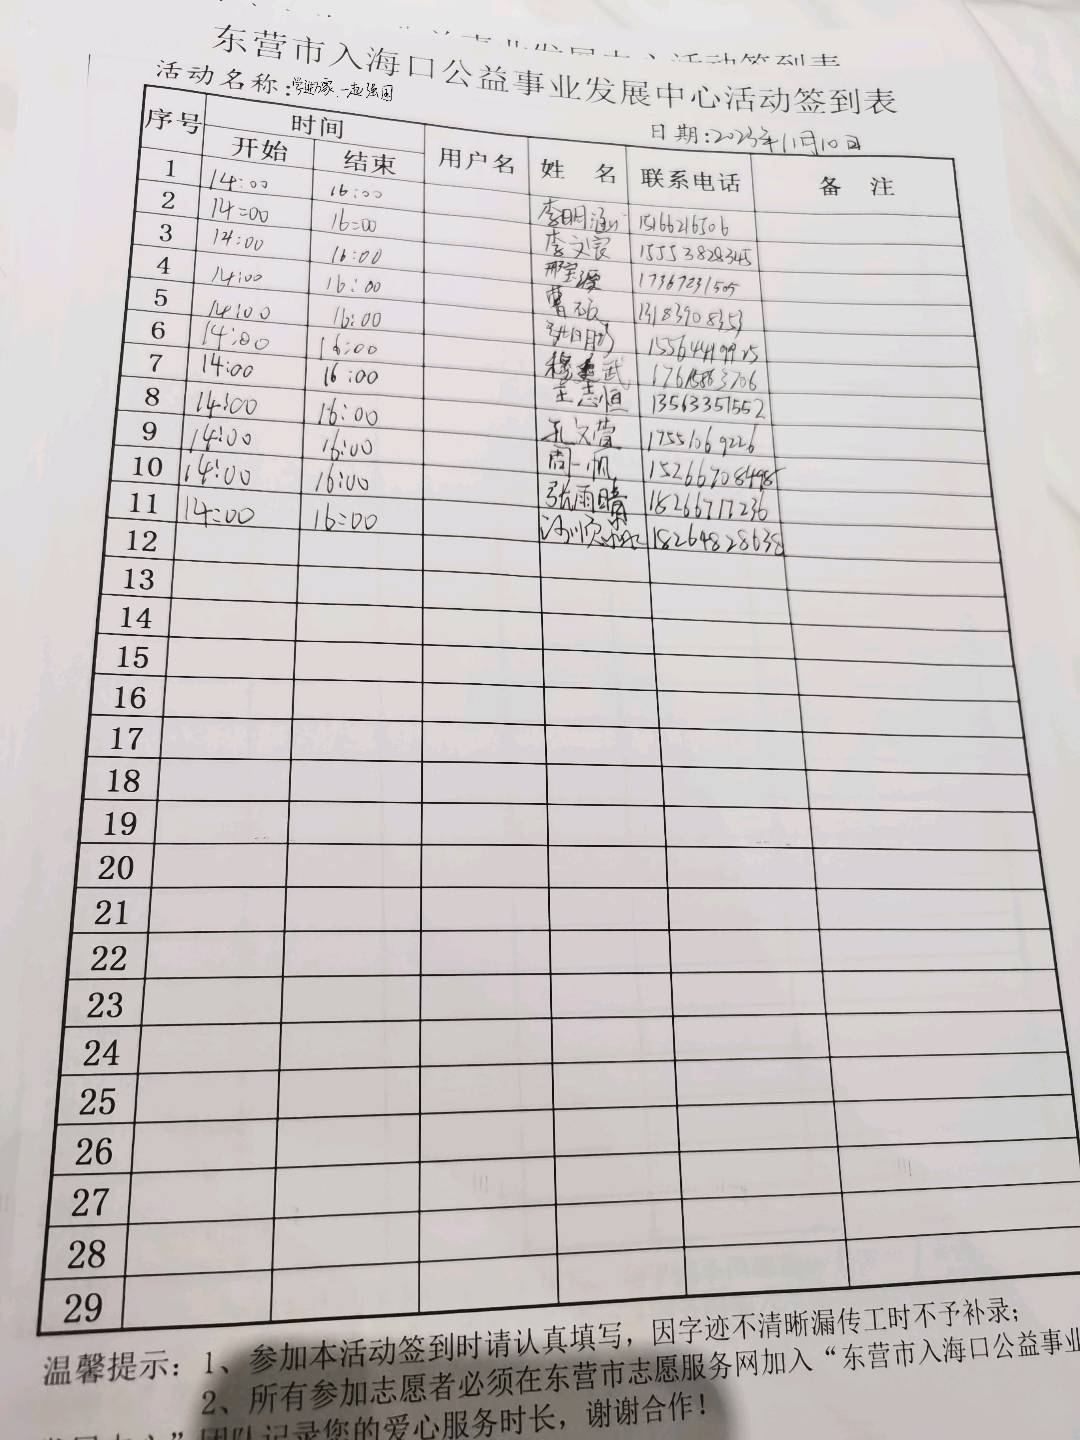 东营市入海口公益事业发展中心活动签到表
活动名称：学雷家一起强国
日期：2023年11月10日
序号 时间 用户名 姓 名 联系电话 备 注
开始 结束
1 14:00 16:00 李明涵 15166216506
2 14:00 16:00 李文宸 15553828345
3 14:00 16:00 邢宝源 17367231505
4 14:00 16:00 曹硕 13183908353
5 14:00 16:00 15564419925
6 14:00 16:00 穆武 17615863706
7 14:00 16:00 王志恒 13563351552
8 14:00 16:00 孔文萱 17551069226
9 14:00 16:00 周一帆 15266708498
10 14:00 16:00 张雨晴 18266717236
11 14:00 16:00 18264828638
12
13
14
15
16
17
18
19
20
21
22
23
24
25
26
27
28
29
温馨提示：1、参加本活动签到时请认真填写，因字迹不清晰漏传工时不予补录；
2、所有参加志愿者必须在东营市志愿服务网加入“东营市入海口公益事业
发展中心”团队记录您的爱心服务时长，谢谢合作！